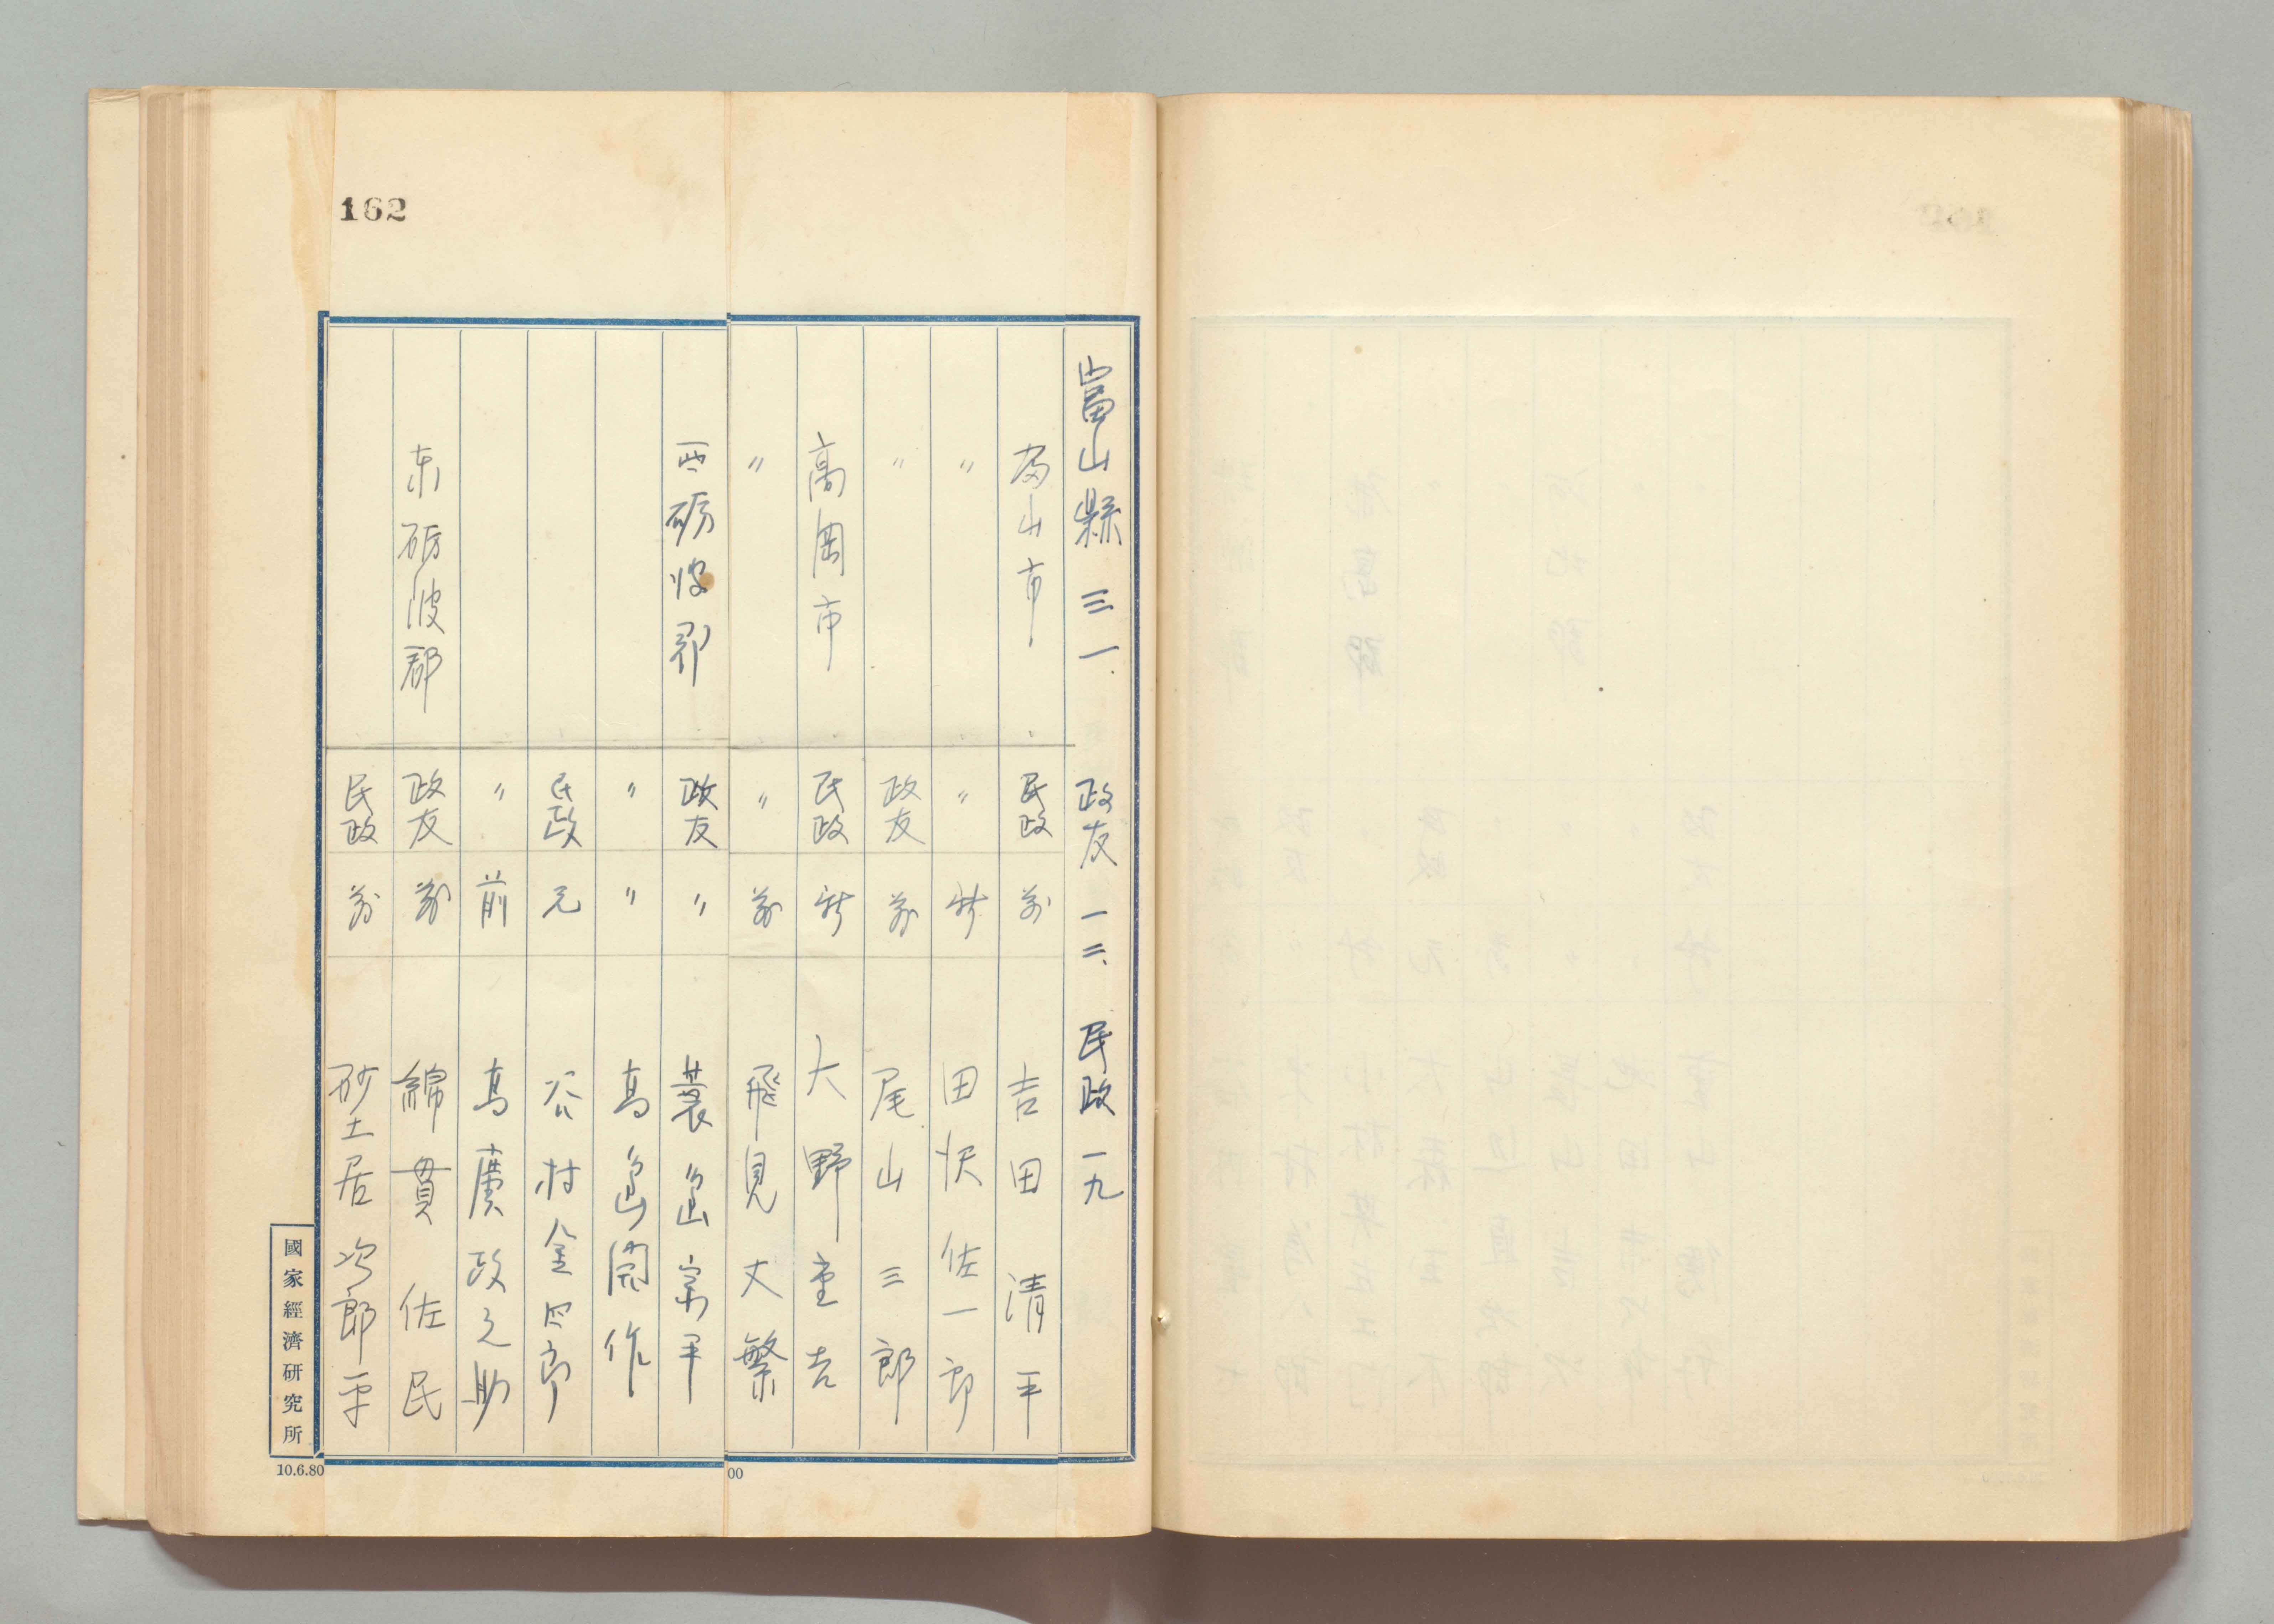 162
富山縣 三一、 政友 一二、 民政 一九
富山市 民政 前 吉田清平
〃 〃 新 田沢佐一郎
〃 政友 前 尾山三郎
高岡市 民政 新 大野重吉
〃 〃 前 飛見丈繁
西砺波郡 政友 〃 蓑島宗平
〃 〃 高島開作
民政 元 谷村金四郎
〃 前 高廣政之助
东砺波郡 政友 前 綿貫佐民
民政 前 砂土居次郎平
國家經濟研究所
10.6.80
00